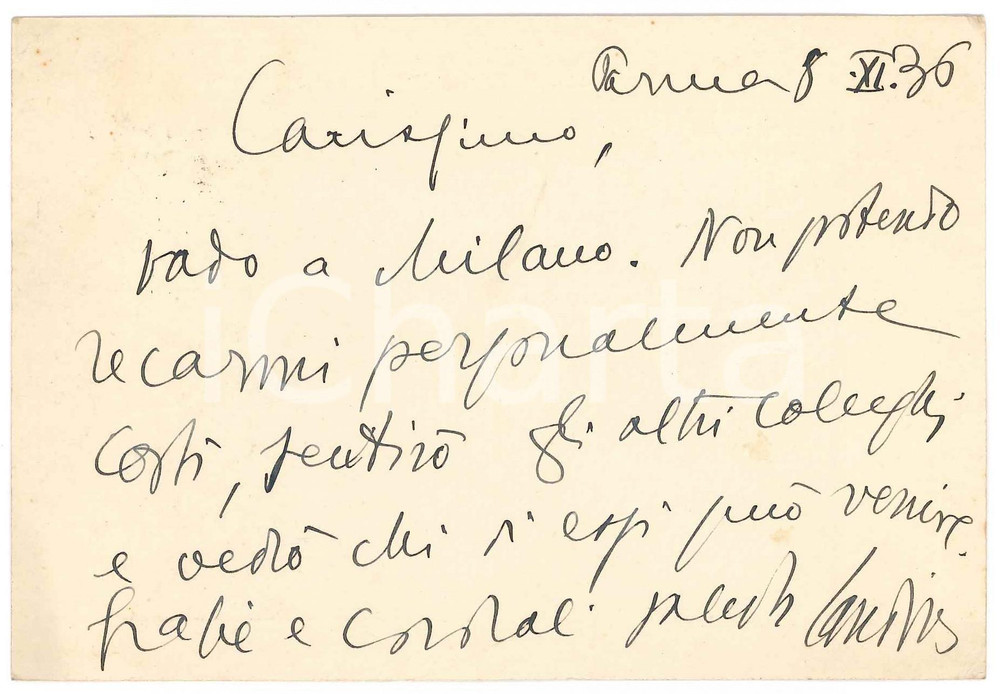 Parma 8 XI.36
Carissimo,
vado a Milano. Non potendo
recarmi personalmente
costì, sentirò gli altri colleghi
e vedrò chi di essi può venire.
Grazie e cordiali saluti
iCharta